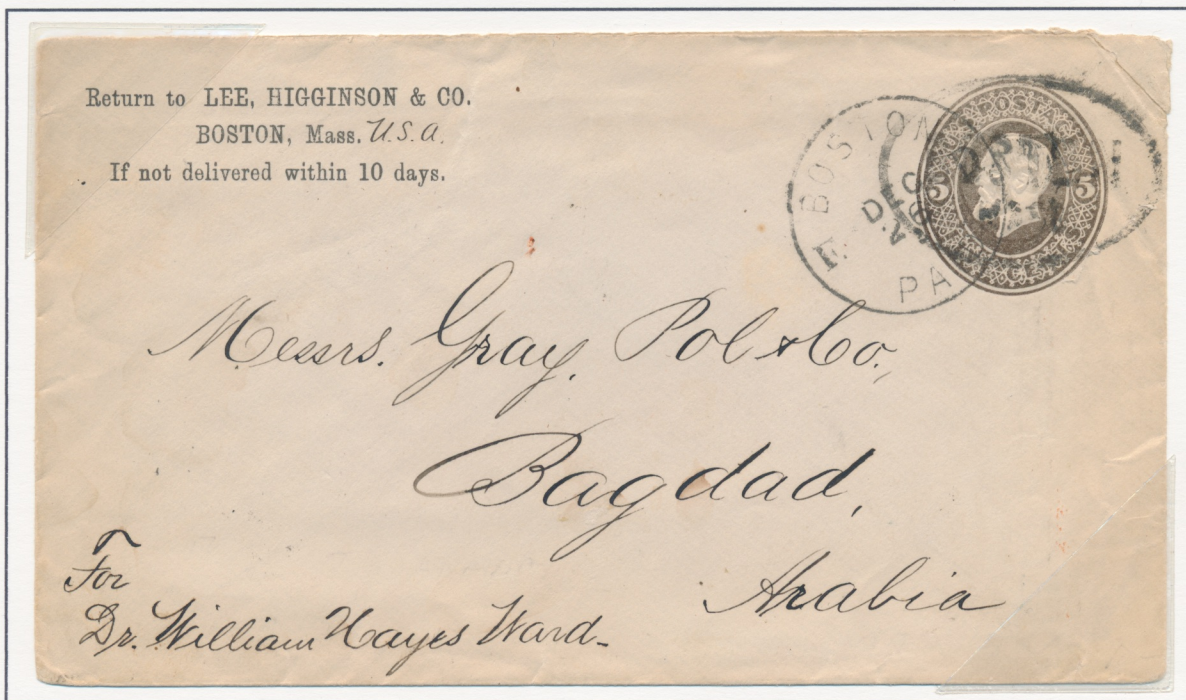 Return to LEE, HIGGINSON & CO.
BOSTON, Mass. U.S.A.
If not delivered within 10 days.
BOSTON
DEC
PA
POSTAGE
5 5
Messrs. Gray, Pol & Co.,
Bagdad,
Arabia
For
Dr. William Hayes Ward-